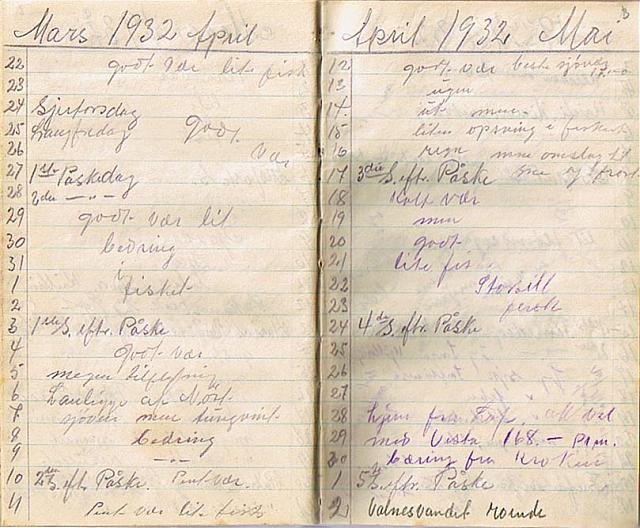 Mars 1932 April
22 godt vær lite fisk
23
24 Skjærtorsdag
25 Langfredag godt
26 vær
27 1ste Påskedag
28 2den — " —
29 godt vær lit
30 bedring
31 i
1 fisket
2
3 1ste S. eftr. Påske
4 godt vær
5 megen
6 Landligge Nost
7 sjøveir men tungvint
8 bedring
9 — " —
10 2den S. eftr. Påske. Pent vær.
11 Pent vær lit fisk
3
April 1932 Mai
12 godt vær beste sjøvær
13 ugen
14 ut men
15 liten opsving i fisket
16 regn men omslag til
17 3die S. eftr. Påske sne og frost
18 Kalt vær
19 men
20 godt
21 lite fisk
22 Storsild
23 fersk
24 4de S. eftr. Påske
25
26
27
28 hjem fra alt vel
29 med Vesta 168.—
30 fra Kroken
1 5te S. eftr. Påske
2 Valnesvandet